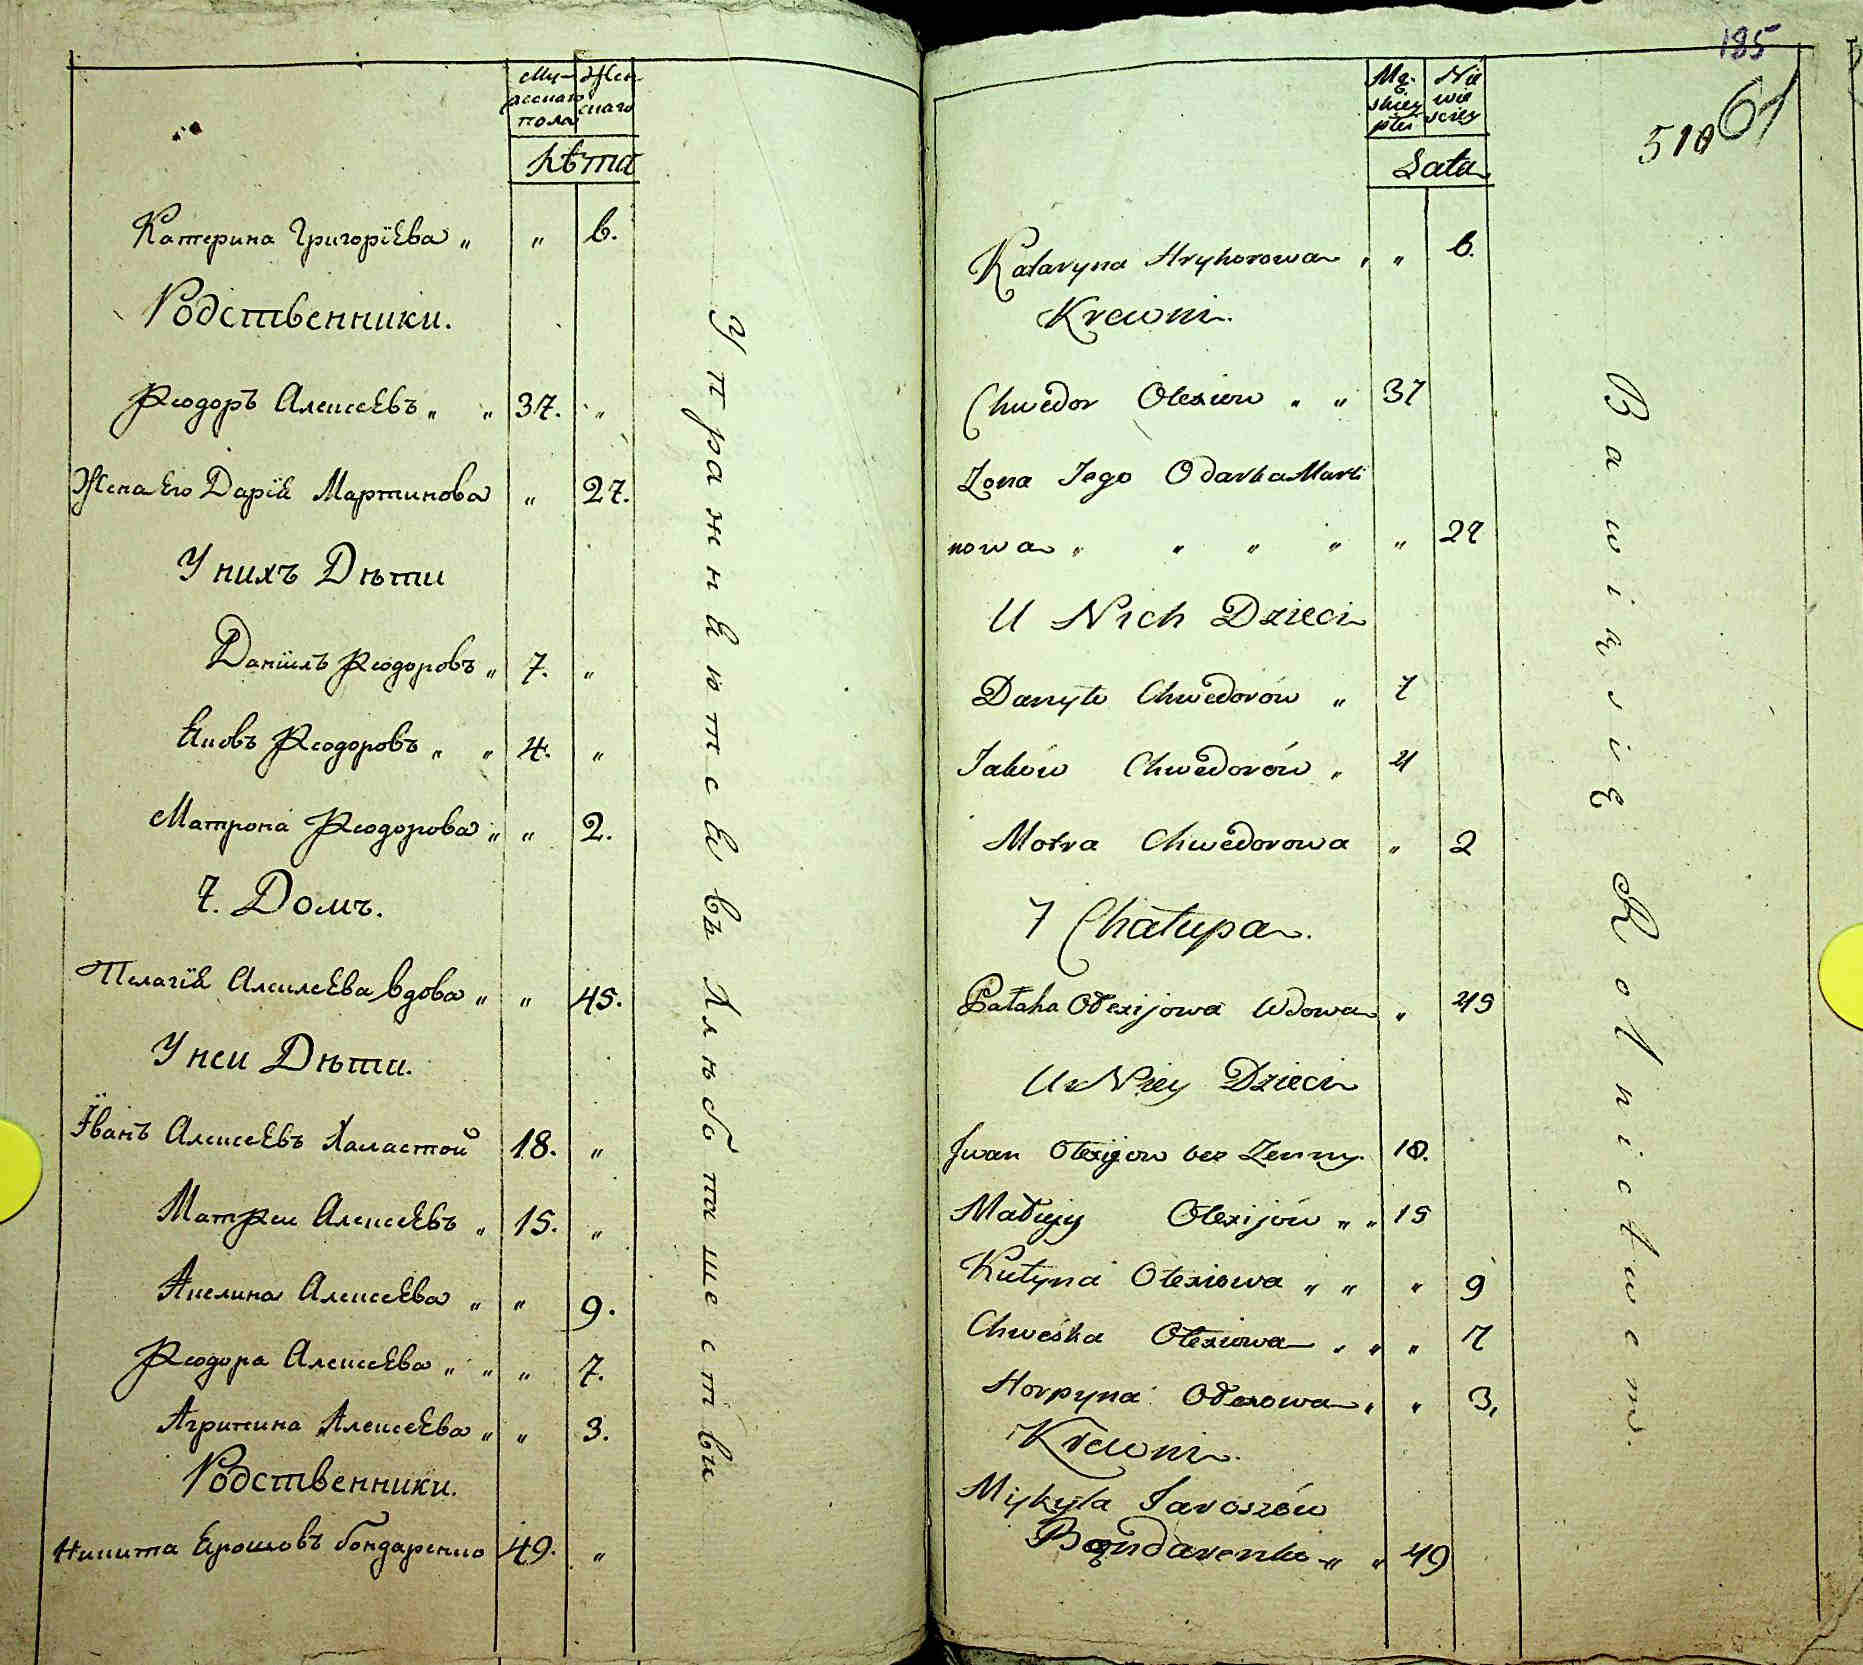 Мужескаго пола
Женскаго
Лѣта
Катерина Григорїева „ „ 6.
Родственники.
Ѳеодоръ Алексеевъ „ „ 37. „
Жена Его Дарїя Мартинова „ 27.
У нихъ Дѣти
Данїилъ Ѳеодоровъ „ 7. „
Яковъ Ѳеодоровъ „ „ 4. „
Матрона Ѳеодорова „ „ 2.
7. Домъ.
Пелагїя Алексеева вдова „ „ 45.
У неи Дѣти.
Їванъ Алексеевъ Халастой 18. „
Матѳеи Алексеевъ „ 15. „
Акелина Алексеева „ „ 9.
Ѳеодора Алексеева „ „ „ 7.
Агрипина Алексеева „ „ 3.
Родственники.
Никита Ярошовъ Бондаренко 49. „
Упражняются въ Хлѣбопашестви
185
61
510
Męskiey płci
Niewiesciey
Lata
Kataryna Hryhorowa „ „ 6.
Krewni.
Chwedor Olexiew „ „ 37
Zona Jego Odarka Marti
nowa „ „ „ „ „ 27
U Nich Dzieci
Danyło Chwedorów „ 7
Jaków Chwedorów „ 4
Motra Chwedorowa „ 2
7 Chałupa.
Pałaha Ołexijowa Wdowa „ 45
U Niey Dzieci
Jwan Olexijow bez Zenny 18.
Matwyy Olexijów „ „ 15
Kulyna Olexiowa „ „ „ 9
Chweśka Olexiowa „ „ „ 7
Horpyna Ołexowa „ „ 3,
Krewni.
Mykyta Jaroszów
Bondarenko „ „ 49
Bawią się Rolnictwem.